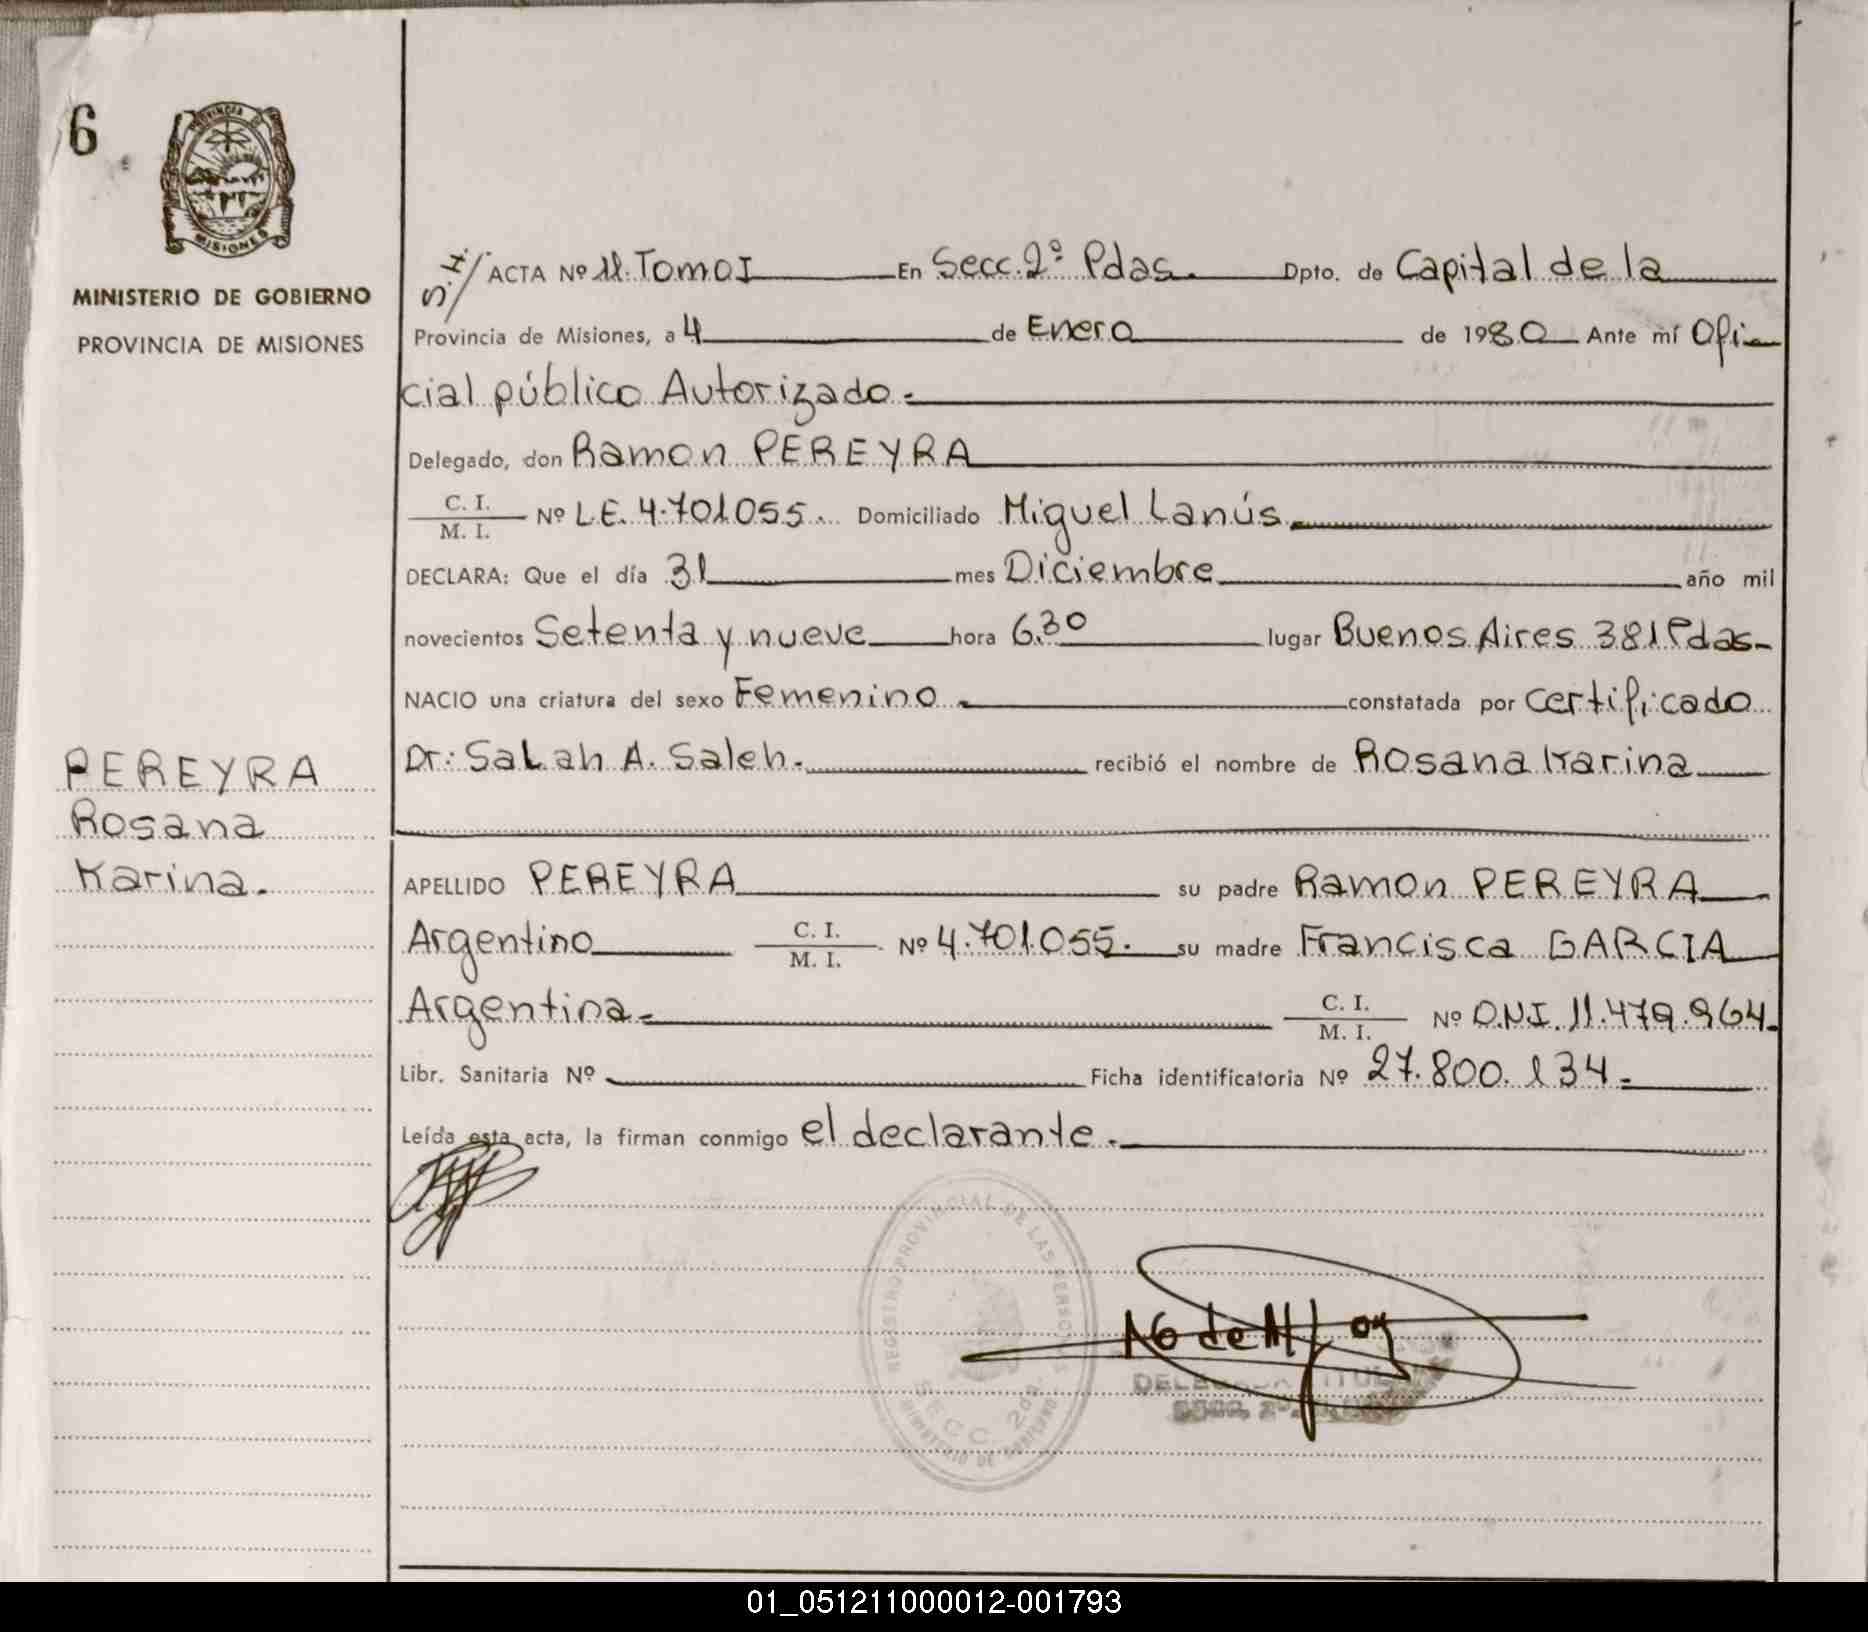 6
PROVINCIA DE
MISIONES
MINISTERIO DE GOBIERNO
PROVINCIA DE MISIONES
PEREYRA
Rosana
Karina.
ACTA Nº 11. Tomo I En Secc. 2º Pdas. Dpto. de Capital de la
Provincia de Misiones, a 4 de Enero de 1980 Ante mí Ofi
cial público Autorizado.
Delegado, don Ramon PEREYRA
C. I.
M. I. Nº L.E. 4.701.055. Domiciliado Miguel Lanús.
DECLARA: Que el día 31 mes Diciembre año mil
novecientos Setenta y nueve hora 6.30 lugar Buenos Aires 381 Pdas.
NACIO una criatura del sexo Femenino. constatada por certificado
Dr: Salah A. Saleh. recibió el nombre de Rosana Karina
APELLIDO PEREYRA su padre Ramon PEREYRA
Argentino C. I. M. I. Nº 4.701.055. su madre Francisca GARCIA
Argentina. C. I. M. I. Nº D.N.I. 11.479.964.
Libr. Sanitaria Nº Ficha identificatoria Nº 27.800.134.
Leída esta acta, la firman conmigo el declarante.
REGISTRO PROVINCIAL DE LAS PERSONAS
SECC. 2da.
MINISTERIO DE GOBIERNO
01_051211000012-001793